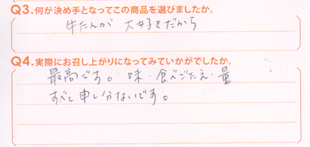 Q3.何が決め手となってこの商品を選びましたか。
牛たんが 大好きだから
Q4.実際にお召し上がりになってみていかがでしたか。
最高です。味・食べごたえ・量
すべて申し分ないです。